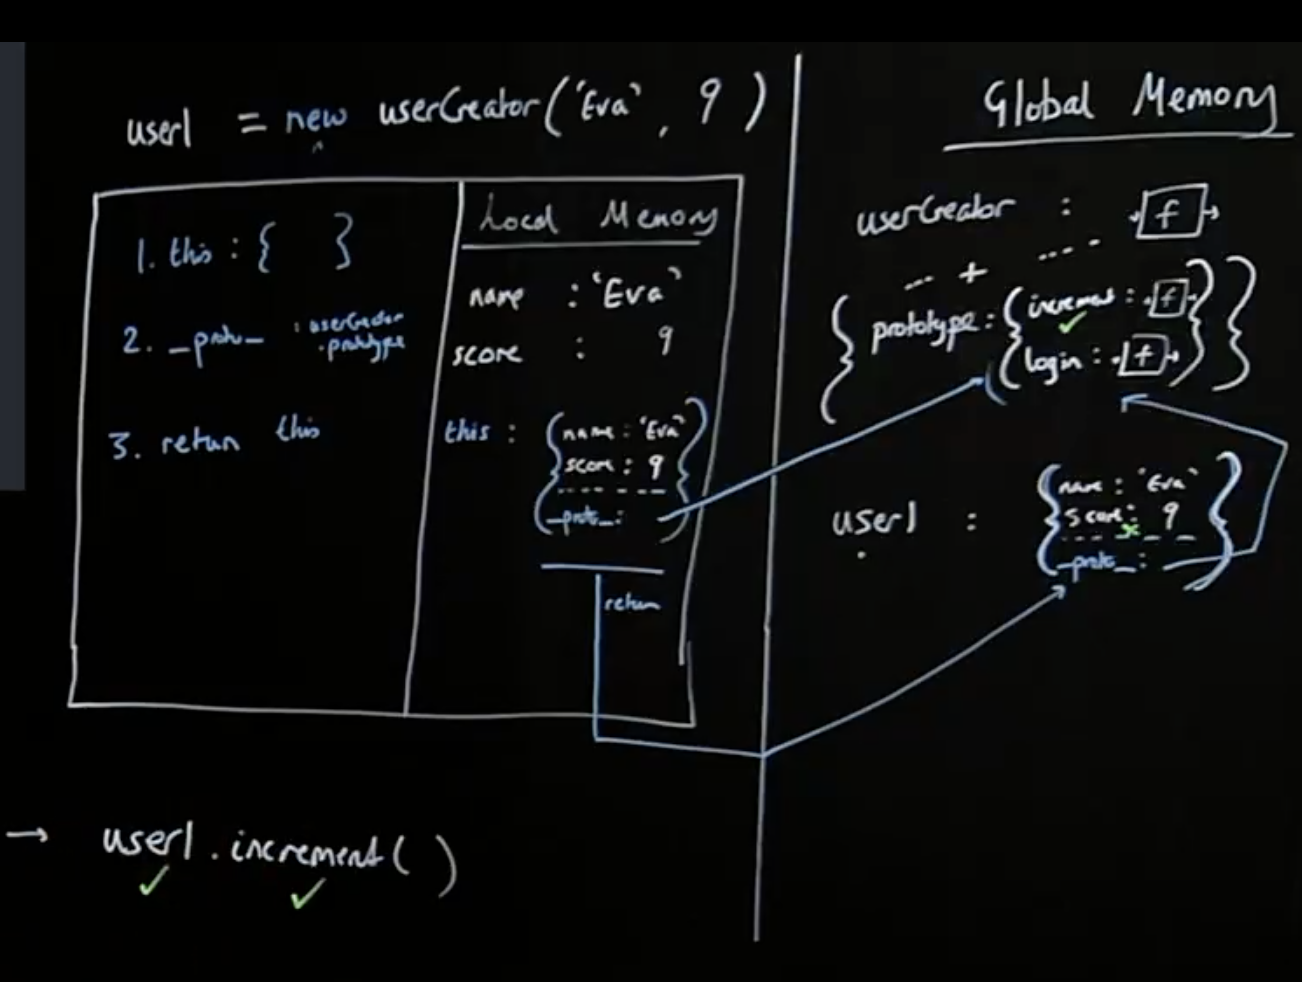 user1 = new userCreator('Eva', 9)
Global Memory
1. this : { }
2. __proto__ : userCreator
.prototype
3. return this
Local Memory
name : 'Eva'
score : 9
this : { name : 'Eva'
score : 9
__proto__ : }
return
userCreator : f
+
{ prototype : { increment : f
login : f } }
user1 : { name : 'Eva'
score : 9
__proto__ : }
→ user1.increment( )